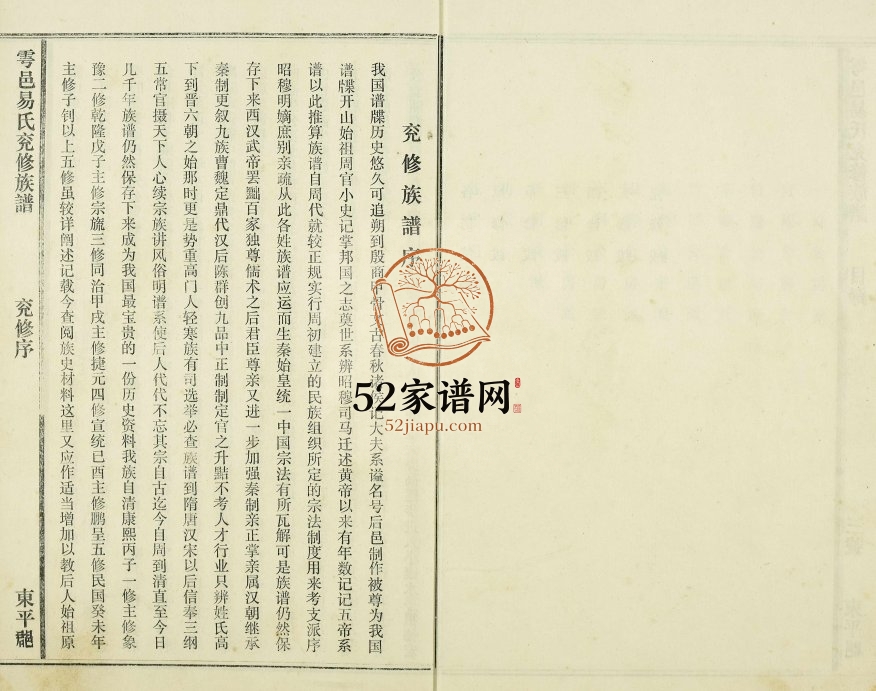 兗修族譜序
我国谱牒历史悠久可追朔到殷商甲骨文古春秋诸侯记大夫系谥名号后邑制作被尊为我国
谱牒开山始祖周官小史记掌邦国之志奠世系辨昭穆司马迁述黄帝以来有年数记记五帝系
谱以此推算族谱自周代就较正规实行周初建立的民族组织所定的宗法制度用来考支派序
昭穆明嫡庶别亲疏从此各姓族谱应运而生秦始皇统一中国宗法有所瓦解可是族谱仍然保
存下来西汉武帝罢黜百家独尊儒术之后君臣尊亲又进一步加强秦制亲正掌亲属汉朝继承
秦制更叙九族曹魏定鼎代汉后陈群创九品中正制制定官之升黠不考人才行业只辨姓氏高
下到晋六朝之始那时更是势重高门人轻寒族有司选举必查族谱到隋唐汉宋以后信奉三纲
五常官摄天下人心续宗族讲风俗明谱系使后人代代不忘其宗自古迄今自周到清直至今日
几千年族谱仍然保存下来成为我国最宝贵的一份历史资料我族自清康熙丙子一修主修象
豫二修乾隆戊子主修宗旒三修同治甲戌主修捷元四修宣统已酉主修鹏呈五修民国癸未年
主修子钊以上五修虽较详阐述记载今查阅族史材料这里又应作适当增加以教后人始祖原
雩邑易氏兗修族譜
兗修序
東平
52家谱网
52jiapu.com